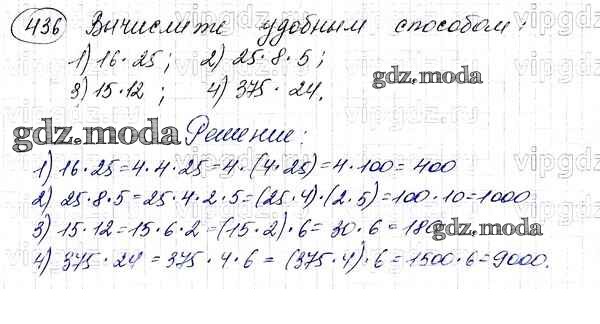 436 Вычислите удобным способом:
1) 16 · 25; 2) 25 · 8 · 5;
3) 15 · 12; 4) 375 · 24.
gdz.moda
gdz.moda Решение:
1) 16 · 25 = 4 · 4 · 25 = 4 · (4 · 25) = 4 · 100 = 400
2) 25 · 8 · 5 = 25 · 4 · 2 · 5 = (25 · 4) · (2 · 5) = 100 · 10 = 1000
3) 15 · 12 = 15 · 6 · 2 = (15 · 2) · 6 = 30 · 6 = 180
gdz.moda
4) 375 · 24 = 375 · 4 · 6 = (375 · 4) · 6 = 1500 · 6 = 9000.